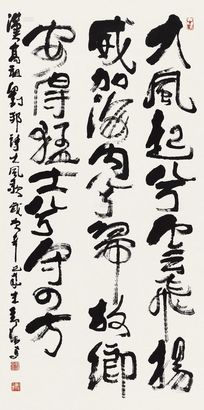 大風起兮雲飛揚
威加海內兮歸故鄉
安得猛士兮守四方
漢高祖劉邦詩大風歌